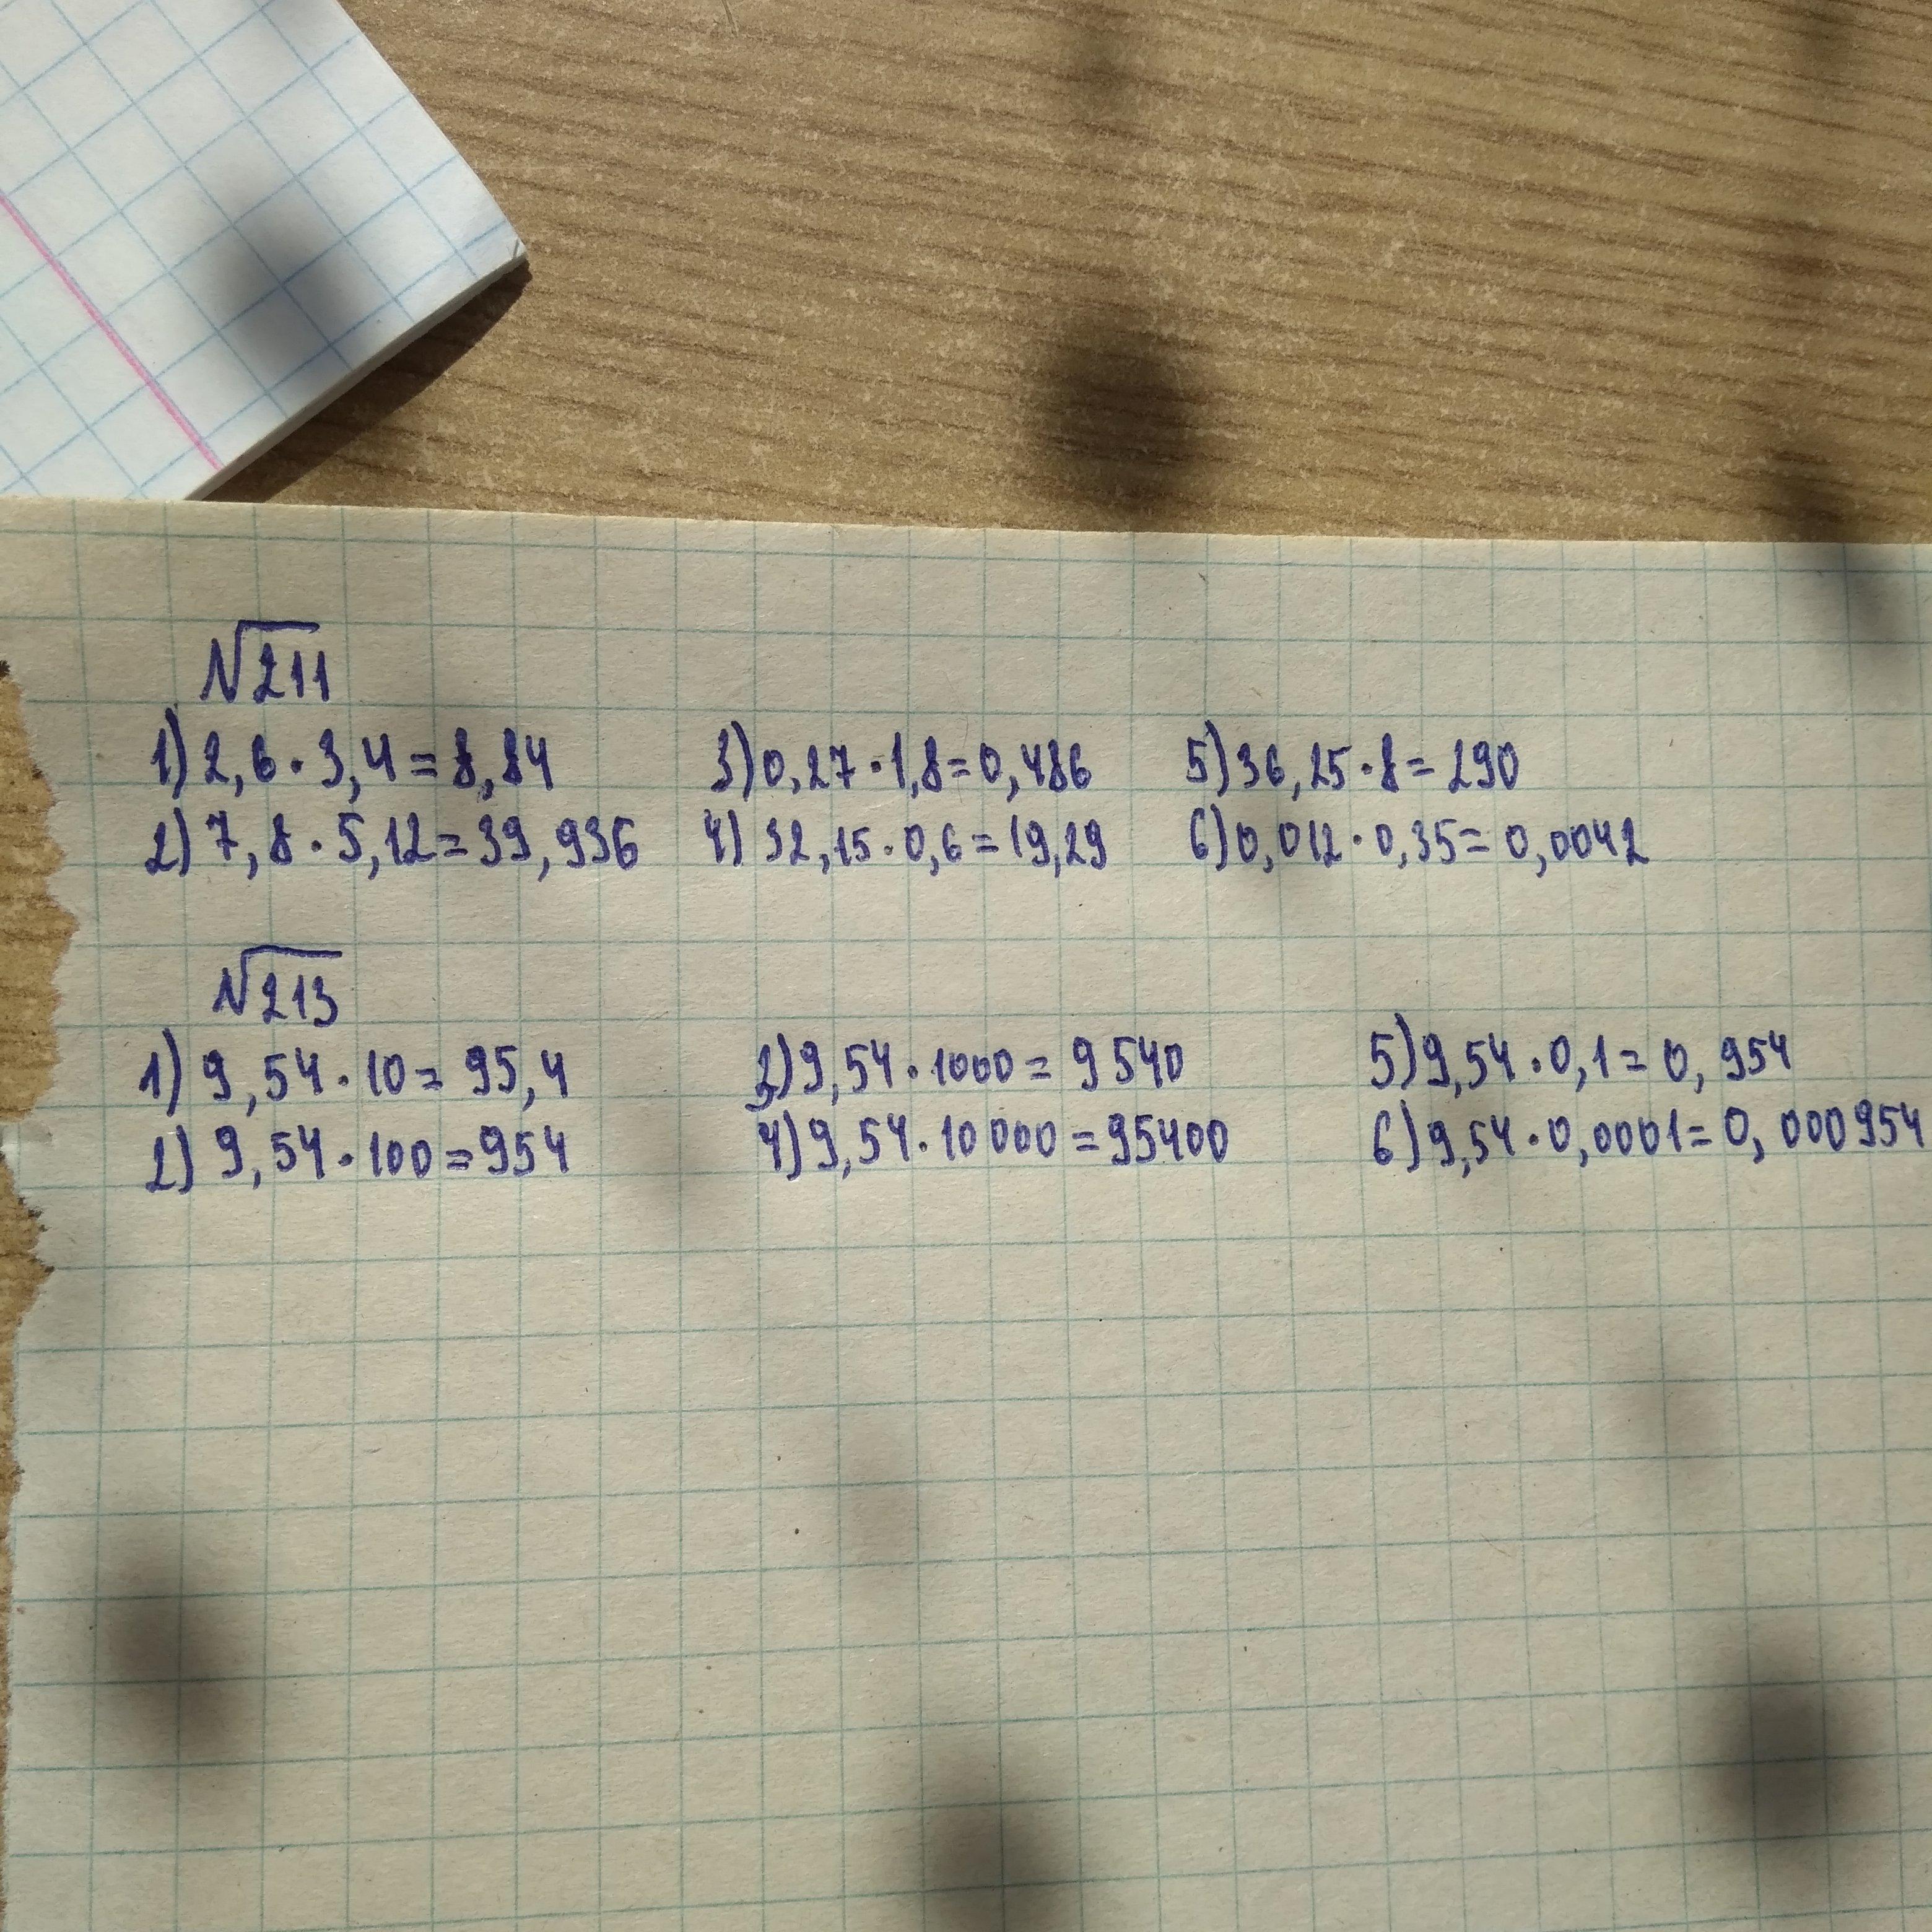 √211
1) 2,6·3,4=8,84 3) 0,27·1,8=0,486 5) 36,25·8=290
2) 7,8·5,12=39,936 4) 32,15·0,6=19,29 6) 0,012·0,35=0,0042
√213
1) 9,54·10=95,4 3) 9,54·1000=9540 5) 9,54·0,1=0,954
2) 9,54·100=954 4) 9,54·10000=95400 6) 9,54·0,0001=0,000954